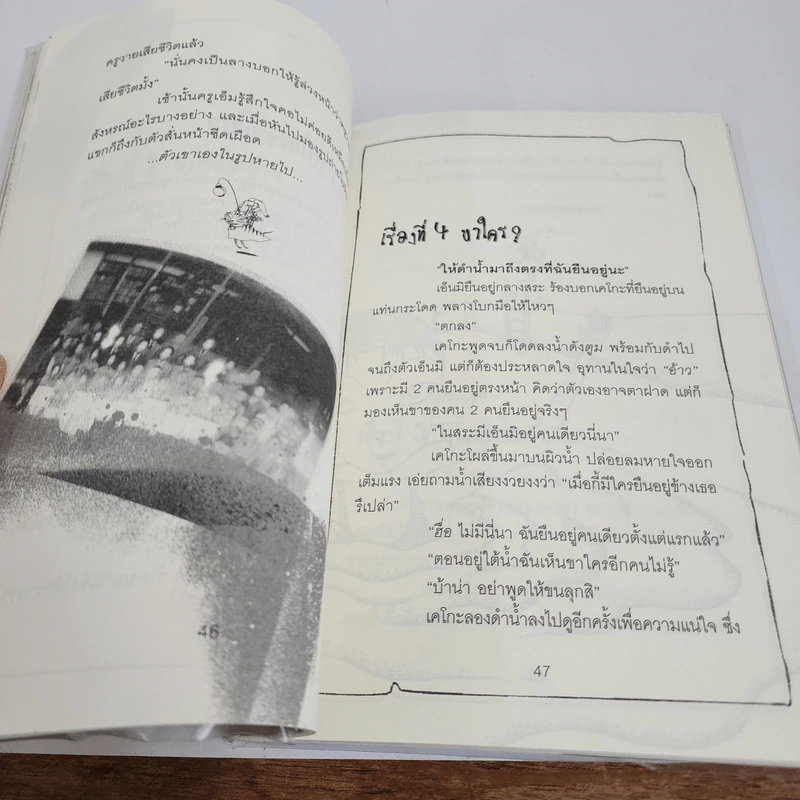 ครูวายเสียชีวิตแล้ว
"นั่นคงเป็นลางบอกให้รู้ล่วงหน้าว่า
เสียชีวิตมั้ง"
เช้านั้นครูเอ็มรู้สึกใจคอไม่ค่อยดี
สังหรณ์อะไรบางอย่าง และเมื่อหันไปมองรูปถ่าย
แขกก็ถึงกับตัวสั่นหน้าซีดเผือด
...ตัวเขาเองในรูปหายไป...
46
เรื่องที่ 4 ขาใคร?
"ให้ดำน้ำมาถึงตรงที่ฉันยืนอยู่นะ"
เอ็นมิยืนอยู่กลางสระ ร้องบอกเคโกะที่ยืนอยู่บน
แท่นกระโดด พลางโบกมือให้ไหวๆ
"ตกลง"
เคโกะพูดจบก็โดดลงน้ำดังตูม พร้อมกับดำไป
จนถึงตัวเอ็นมิ แต่ก็ต้องประหลาดใจ อุทานในใจว่า "อ้าว"
เพราะมี 2 คนยืนอยู่ตรงหน้า คิดว่าตัวเองอาจตาฝาด แต่ก็
มองเห็นขาของคน 2 คนยืนอยู่จริงๆ
"ในสระมีเอ็นมิอยู่คนเดียวนี่นา"
เคโกะโผล่ขึ้นมาบนผิวน้ำ ปล่อยลมหายใจออก
เต็มแรง เอ่ยถามน้ำเสียงงวยงงว่า "เมื่อกี้มีใครยืนอยู่ข้างเธอ
รึเปล่า"
"ฮื่อ ไม่มีนี่นา ฉันยืนอยู่คนเดียวตั้งแต่แรกแล้ว"
"ตอนอยู่ใต้น้ำฉันเห็นขาใครอีกคนไม่รู้"
"บ้าน่า อย่าพูดให้ขนลุกสิ"
เคโกะลองดำน้ำลงไปดูอีกครั้งเพื่อความแน่ใจ ซึ่ง
47